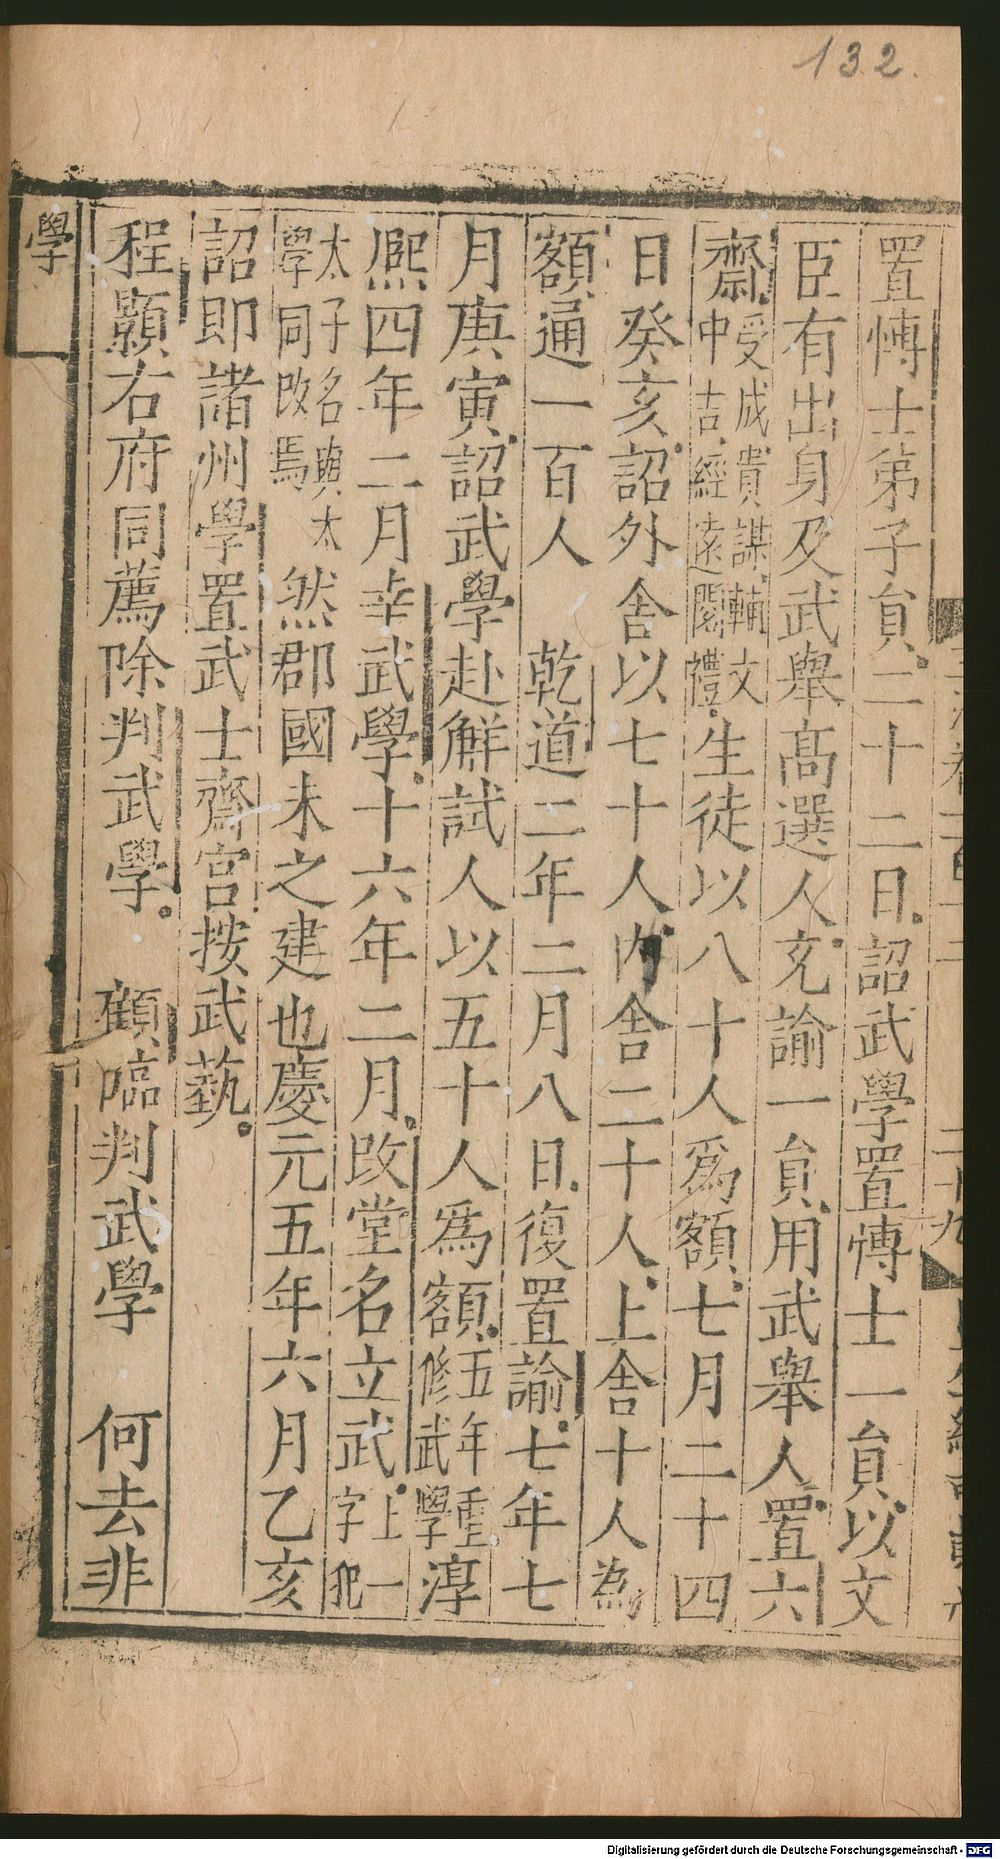 132.
置博士弟子員二十二日詔武學置博士一員以文
臣有出身及武舉高選人充諭一員用武舉人置六
齋受成貴謀輔文中吉經遠閱禮生徒以八十人爲額七月二十四
日癸亥詔外舍以七十人內舍二十人上舍十人為
額通一百人 乾道二年二月八日復置諭七年七
月庚寅詔武學赴解試人以五十人爲額五年重修武學淳
熙四年二月幸武學十六年二月改堂名立武上一字犯
太子名與太學同改焉然郡國未之建也慶元五年六月乙亥
詔即諸州學置武士齋宮按武藝
程顥右府同薦除判武學 顧臨判武學 何去非
學
二十九
Digitalisierung gefördert durch die Deutsche Forschungsgemeinschaft - DFG